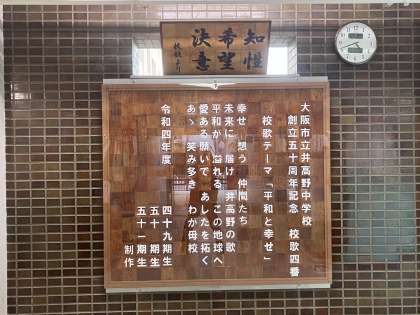 知性
希望
決意
校歌より
大阪市立井高野中学校
創立五十周年記念 校歌四番
校歌テーマ「平和と幸せ」
幸せ 想う 仲間たち
未来に 届け 井高野の歌
平和が 溢れる この地球へ
愛ある願いで あしたを拓く
あゝ 笑み多き わが母校
令和四年度 四十九期生
五十期生
五十一期生
制作